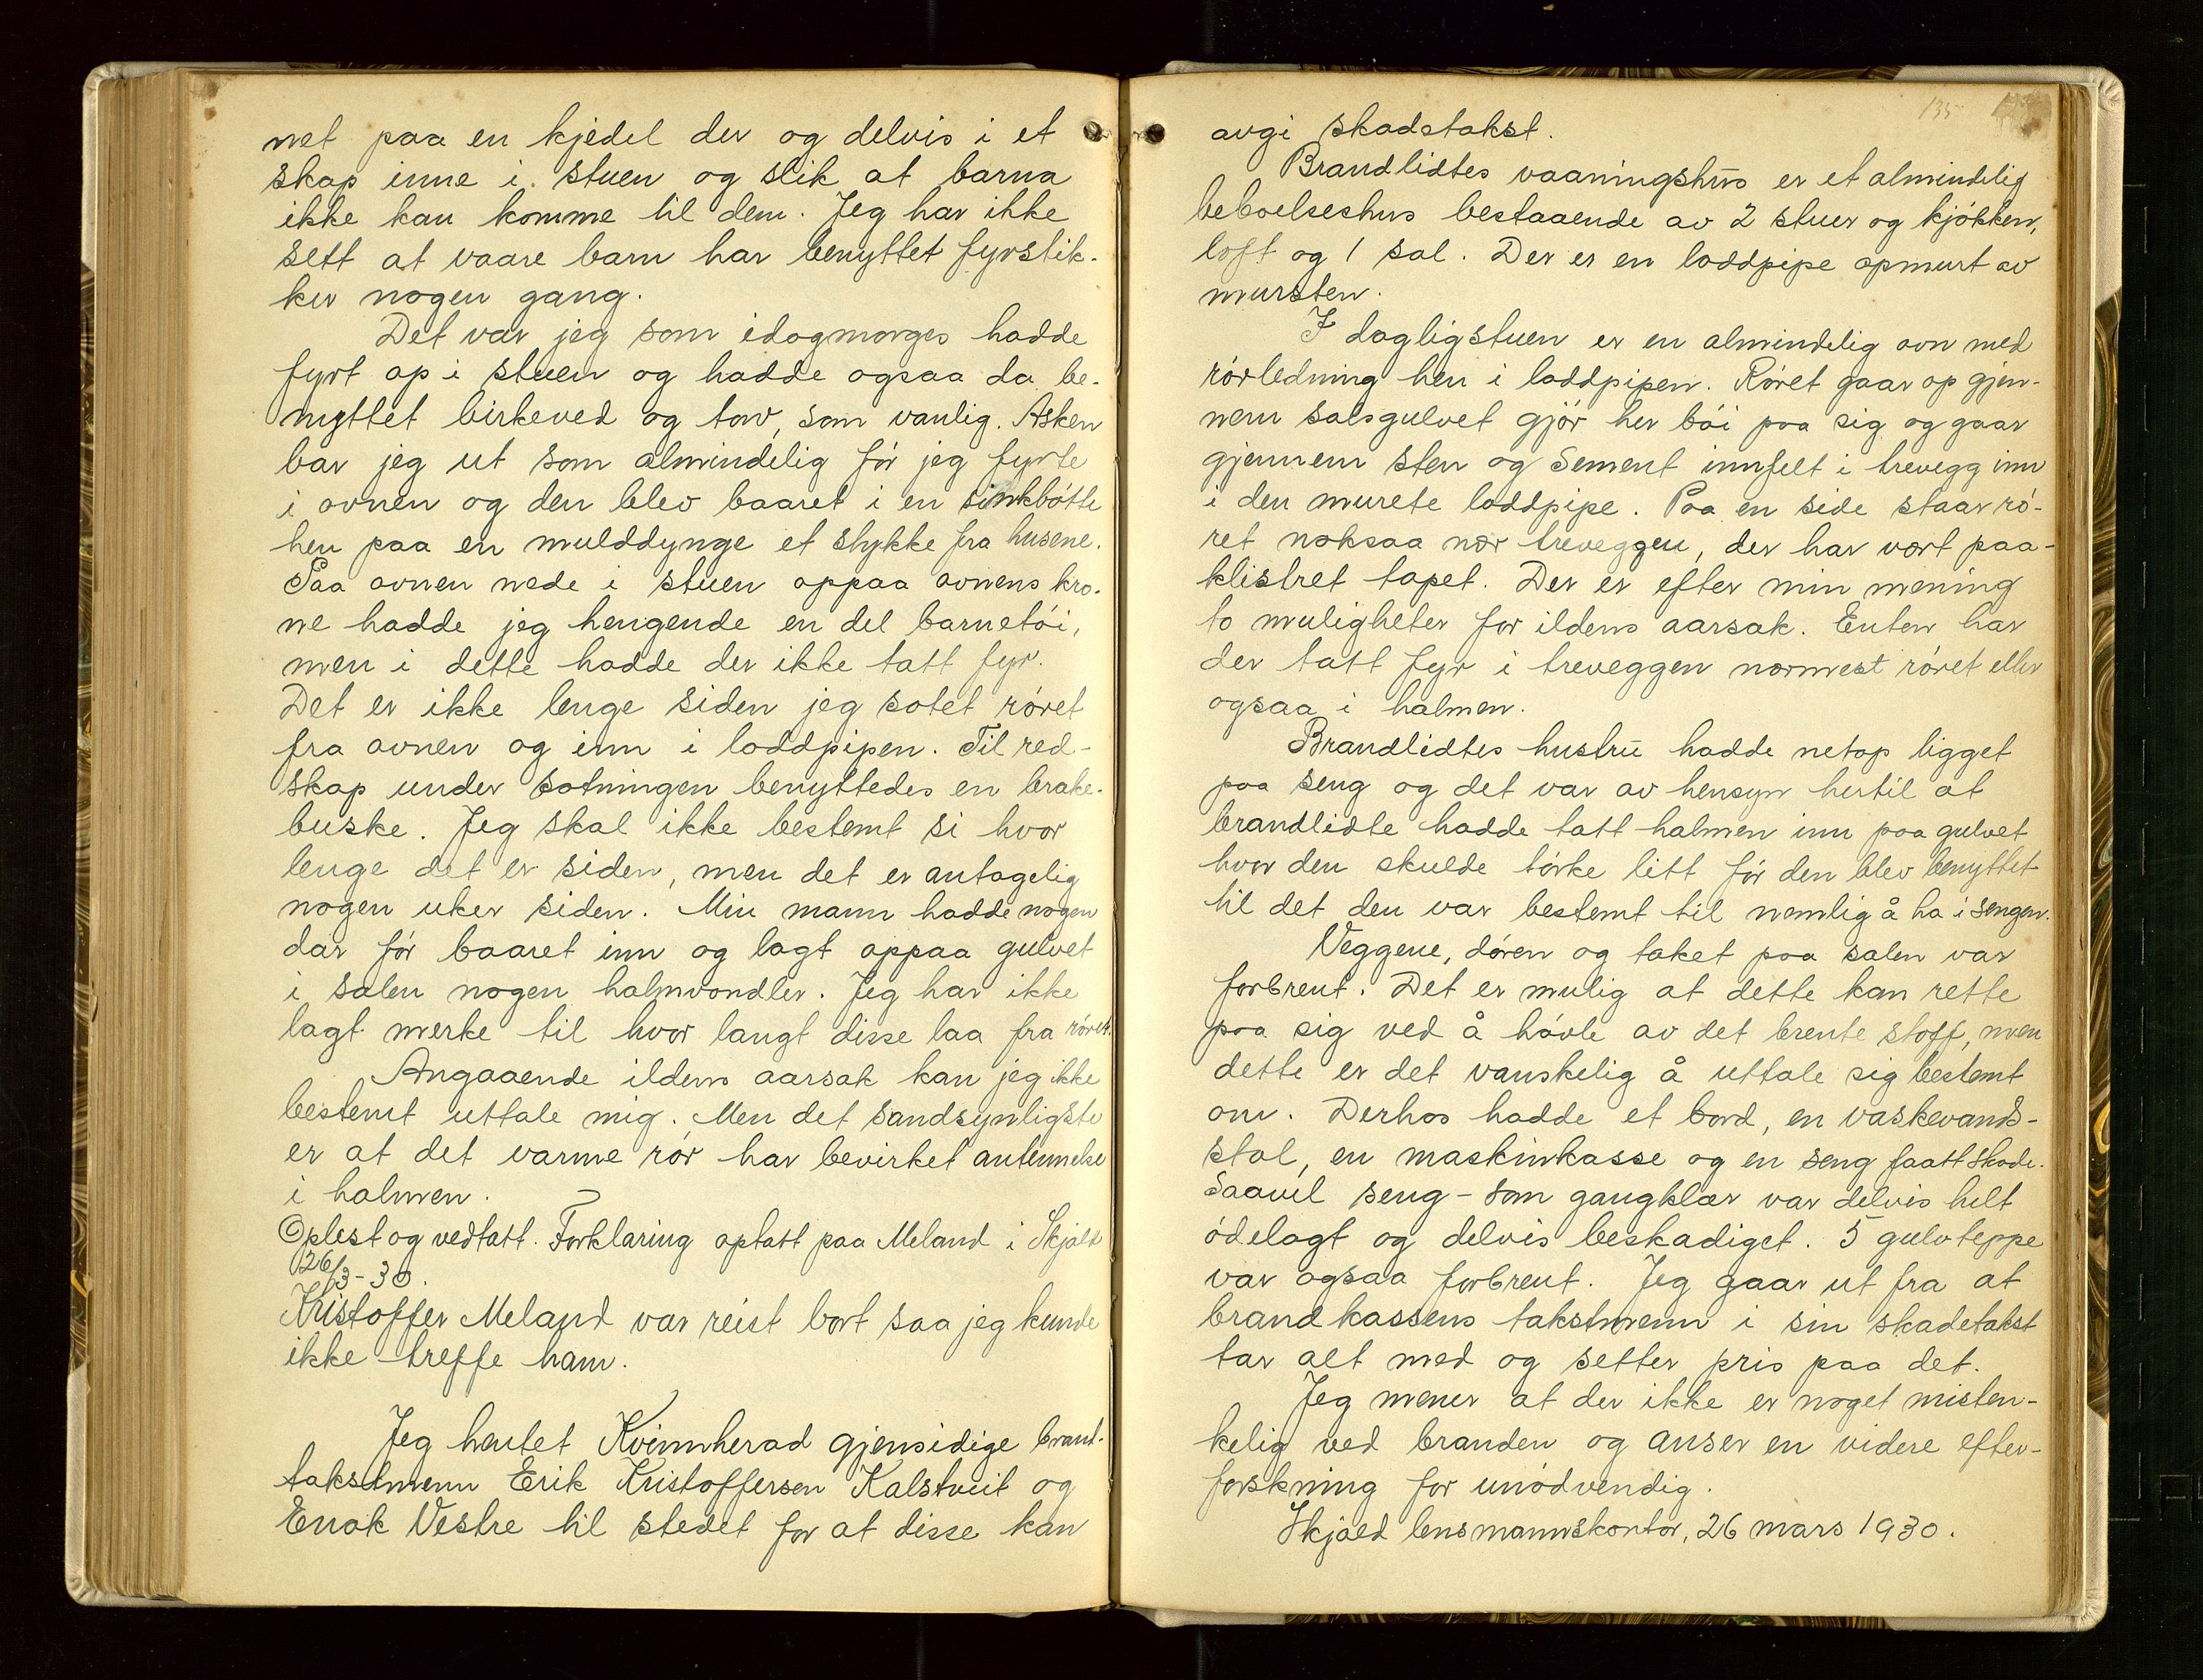 net paa en kjedel der og delvis i et
skap inne i stuen og slik at barna
ikke kan komme til dem. Jeg har ikke
sett at vaare barn har benyttet fyrstik-
ker nogen gang.
Det var jeg som idagmorges hadde
fyrt op i stuen og hadde ogsaa da be-
nyttet birkeved og torv, som vanlig. Asken
bar jeg ut som almindelig før jeg fyrte
i ovnen og den blev baaret i en sinkbøtte
hen paa en mulddynge et stykke fra husene.
Paa ovnen nede i stuen oppaa ovnens kro-
ne hadde jeg hengende en del barnetøi,
men i dette hadde der ikke tatt fyr.
Det er ikke lenge siden jeg sotet røret
fra ovnen og inn i loddpipen. Til red-
skap under sotningen benyttedes en brake-
buske. Jeg skal ikke bestemt si hvor
lenge det er siden, men det er antagelig
nogen uker siden. Min mann hadde nogen
dar før baaret inn og lagt oppaa gulvet
i salen nogen halmvondler. Jeg har ikke
lagt merke til hvor langt disse laa fra røret.
Angaaende ildens aarsak kan jeg ikke
bestemt uttale mig. Men det sandsynligste
er at det varme rør har bevirket antennelse
i halmen.
Oplest og vedtatt. Forklaring optatt paa Meland i Skjold
26/3-30.
Kristoffer Meland var reist bort saa jeg kunde
ikke treffe ham.
Jeg hentet Kvinnherad gjensidige brand-
takstmenn Erik Kristoffersen Kalstveit og
Enok Vestre til stedet for at disse kan
135
avgi skadetakst.
Brandlidtes vaaningshus er et almindelig
beboelseshus bestaaende av 2 stuer og kjøkken,
loft og 1 sal. Der er en loddpipe opmurt av
mursten.
I dagligstuen er en almindelig ovn med
rørledning hen i loddpipen. Røret gaar op gjen-
nem salsgulvet gjør her bøi paa sig og gaar
gjennem sten og sement innfelt i trevegg inn
i den murete loddpipe. Paa en side staar rø-
ret noksaa nær treveggen, der har vært paa-
klistret tapet. Der er efter min mening
to muligheter for ildens aarsak. Enten har
der tatt fyr i treveggen nærmest røret eller
ogsaa i halmen.
Brandlidtes hustru hadde netop ligget
paa seng og det var av hensyn hertil at
brandlidte hadde tatt halmen inn paa gulvet
hvor den skulde tørke litt før den blev benyttet
til det den var bestemt til nemlig å ha i sengen.
Veggene, døren og taket paa salen var
forbrent. Det er mulig at dette kan rette
paa sig ved å høvle av det brente stoff, men
dette er det vanskelig å uttale sig bestemt
om. Derhos hadde et bord, en vaskevands-
stol, en maskinkasse og en seng faatt skade.
Saavel seng- som gangklær var delvis helt
ødelagt og delvis beskadiget. 5 gulvteppe
var ogsaa forbrent. Jeg gaar ut fra at
brandkassens takstmenn i sin skadetakst
tar alt med og setter pris paa det.
Jeg mener at der ikke er noget misten-
kelig ved branden og anser en videre efter-
forskning for unødvendig.
Skjold lensmannskontor, 26 mars 1930.